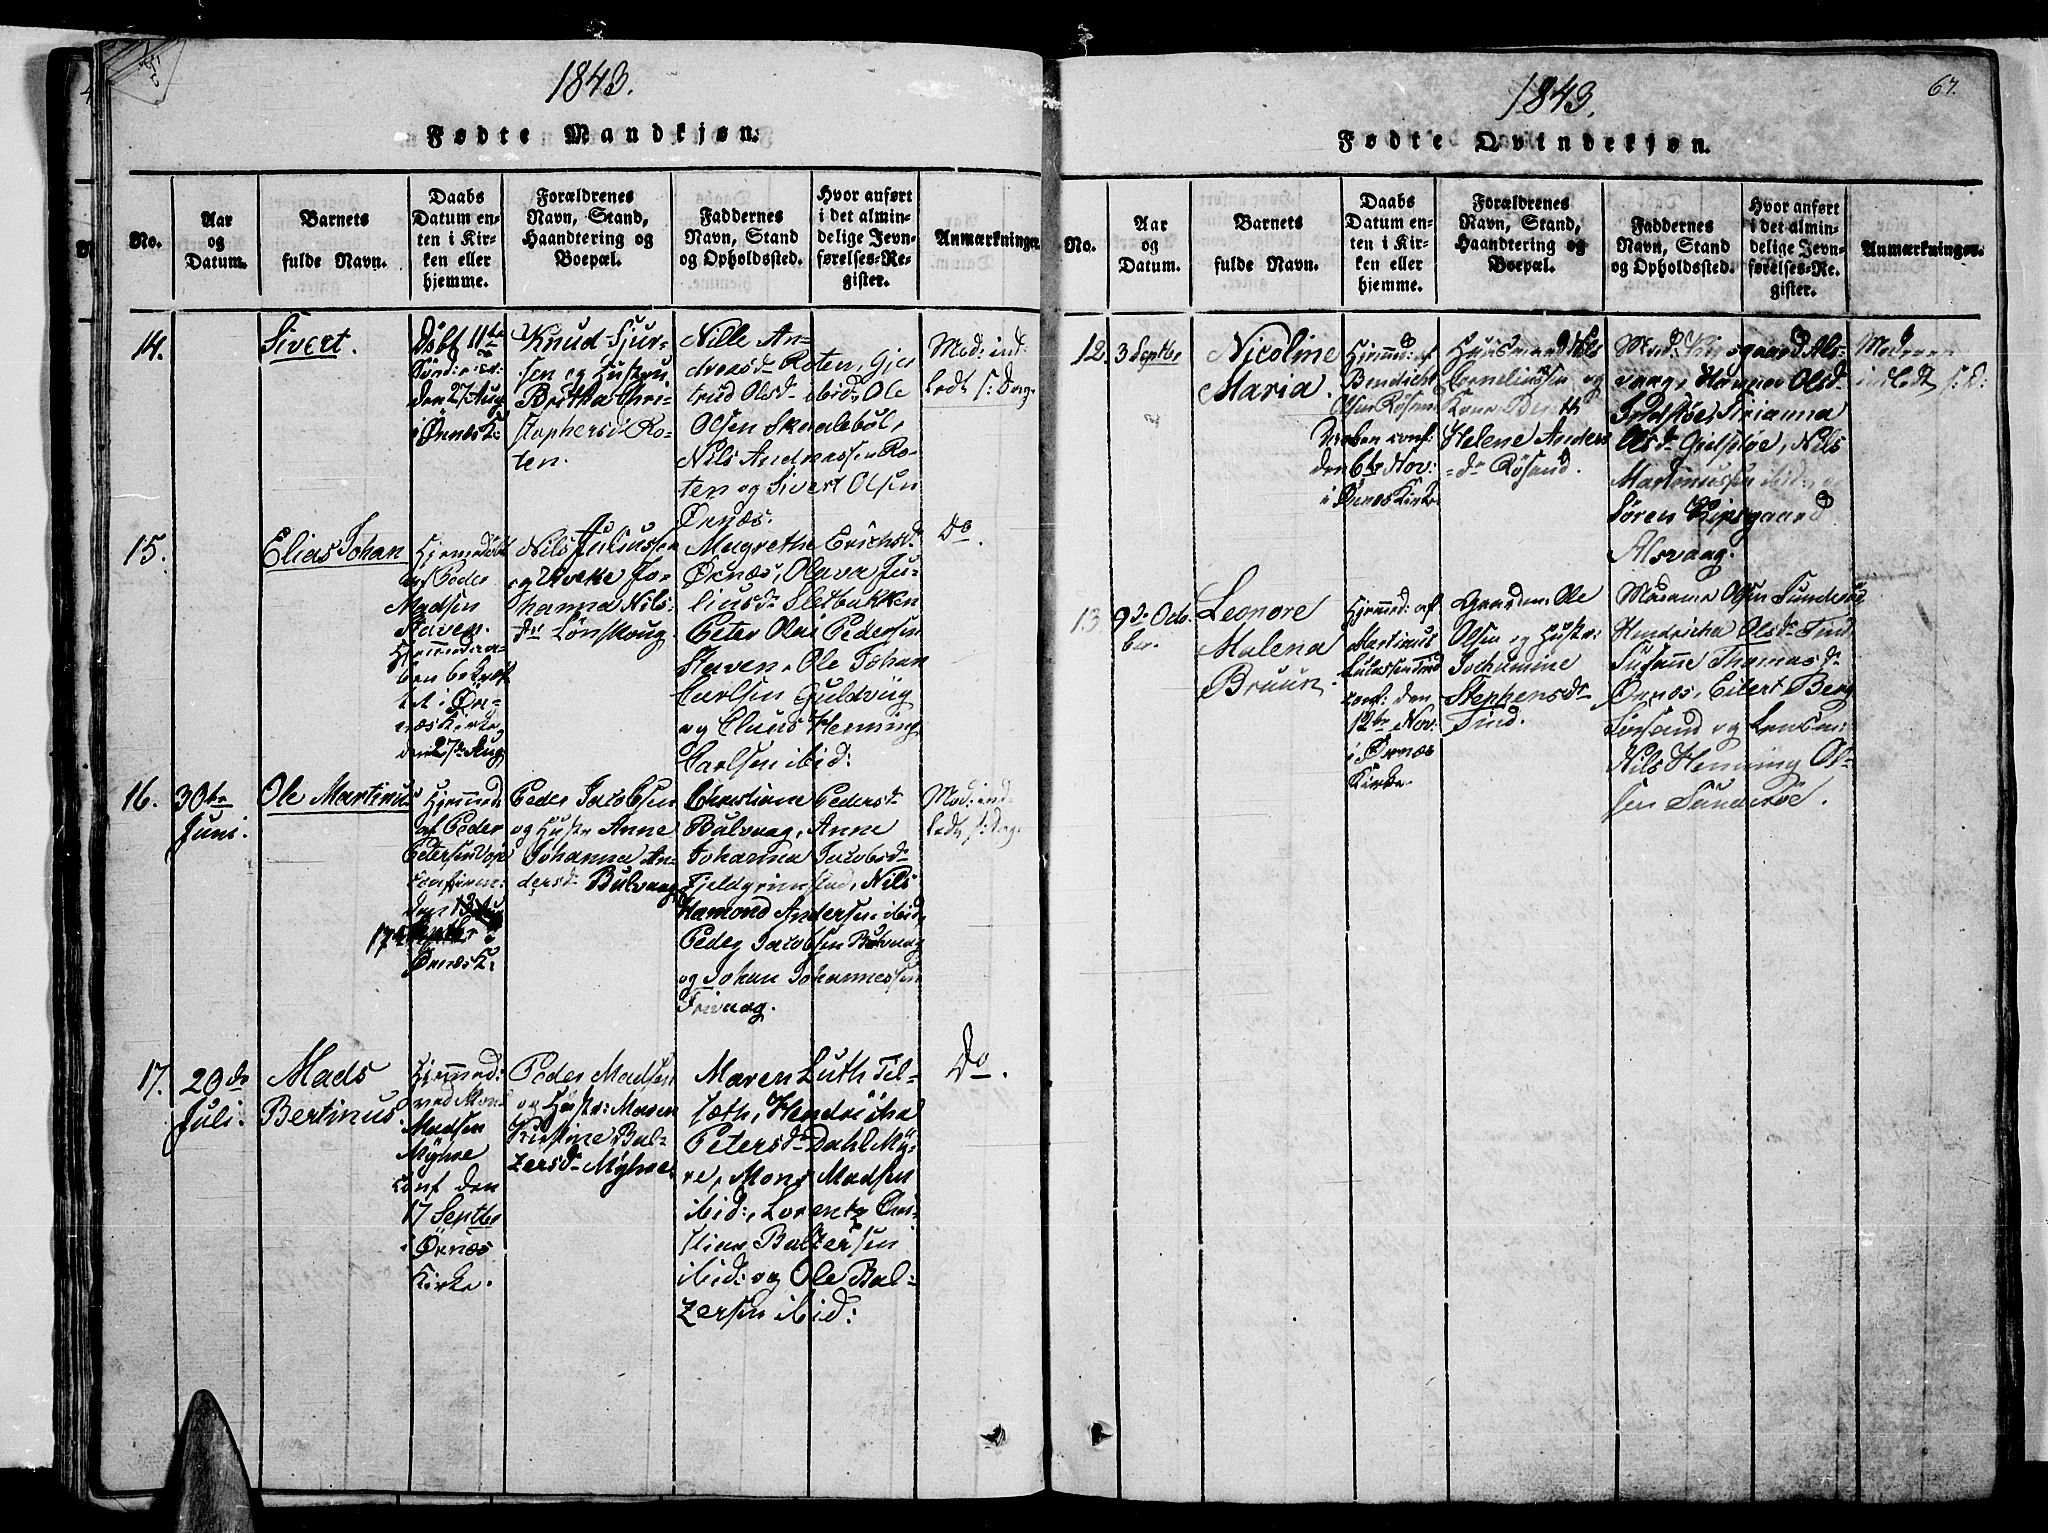 1843.
Fødte Mandkjøn.
No.
Aar
og
Datum.
Barnets
fulde Navn.
Daabs
Datum en-
ten i Kir-
ken eller
hjemme.
Forældrenes
Navn, Stand,
Haandtering og
Boepæl.
Faddernes
Navn, Stand
og Opholdssted.
Hvor anført
i det almin-
delige Jevn-
førelses-Re-
gister.
Anmærkninger.
14.
Sivert.
Döbt 11te
Sönd:
den 27 Aug
i Örnæs K:
Knud Sjur-
sen og Hustru
Britha Chri-
stophersd Ro-
ten.
Nille An-
dreasd Roten, Gje
trud Olsd ibid, Ole
Olsen Skaaleböl,
Nils Andreassen Ro-
ten og Sivert Olsen
Örnæs.
Mod: ind-
ledt s: Dag.
15.
Elias Johan
Hjemedöbt
af Peder
Madsen
Staven.
Hjemmedaa-
ben bekræft
et i Ör-
næs Kirke
den 27de Aug
Nils Juliussen
og Jo-
hanna Nils
dr Lönskoug.
Magrethe Erichsd
Örnæs, Olava Ju-
liusd Sletbakken
Peter Olai Pedersen
Staven, Ole Johan
Carlsen Guldviig
og Claus Henning
Carlsen ibid:
Do.
16.
30te
Juni.
Ole Martinus
Hjemmed:
af Peder
Petersen
confirm:
den
17
Örnæs K:
Peder Jacobsen
og Hustr Anne
Johanna An-
dersd Bulvaag
Christiane Pedersd
Bulvaag, Anne
Johanna Jacobsd
Fjeldgrimstad, Nils
Hamond Andersen ibid
Peder Jacobsen Bulvaag
og Johan Johannessen
Frivaag.
Mod: ind-
ledt s: Dag.
17.
20de
Juli.
Mads
Bertinus.
Hjemmed:
ved Mons
Madsen
Myhre
conf den
17 Septbr
i Örnæs
Kirke.
Peder Madsen
og Hustr: Maren
Kirstine Bal-
zersd Myhre.
Maren Luth Til-
sæth, Hendricha
Petersd Dahl My-
re, Mons Madsen
ibid:, Lorentz Chri-
stian Baltzersen
ibid: og Ole Bal-
zersen ibid:
Do.
1843.
67.
Fødte Qvindekjøn.
No.
Aar
og
Datum.
Barnets
fulde Navn.
Daabs
Datum en-
ten i Kir-
ken eller
hjemme.
Forældrenes
Navn, Stand,
Haandtering og
Boepæl.
Faddernes
Navn, Stand
og Opholdssted.
Hvor anført
i det almin-
delige Jevn-
førelses-Re-
gister.
Anmærkninger.
12.
3 Septbr
Nicoline
Maria.
Hjemmed: af
Bendicht
Olsen Rösand
Daaben conf:
den 6te Nov:
i Örnæs Kirke
Huusmand Nils
Corneliussen og
Kone Birith
Helene Anders
-dr Rösand.
Mad: Kipsgaard Als-
vaag, Hanna Olsd
Gidsköe, Arianna
Olsd Gidsköe, Nils
Martinussen ibid: og
Sören Kipsgaard
Alsvaag.
Moderen
indledt s: D:
13
9de Octo-
ber.
Leonore
Malena
Bruun.
Hjemmed: af
Martinus
Lucassen Tind
conf: den
12te Nov:
i Örnæs
Kirke.
Gaardm: Ole
Olsen og Hustr:
Jochumine
Stephensdr
Tind.
Madame Olsen Sunderöe
Hendricha Olsdr Tind
Susanne Thomasdr
Örnæs, Eilert Berg
Sörsand og Lensm:
Nils Henning Ol-
sen Sunderöe.